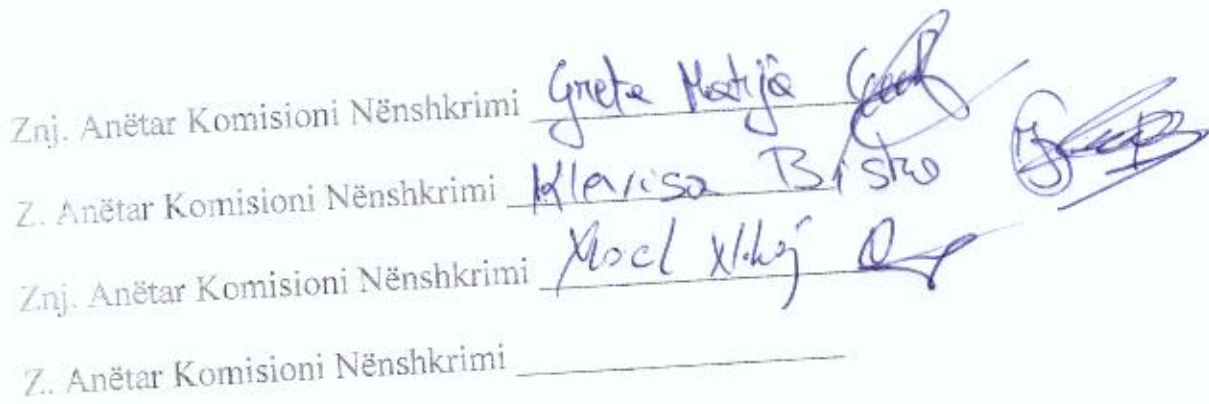 Znj. Anëtar Komisioni Nënshkrimi Greta Matija
Z. Anëtar Komisioni Nënshkrimi Klarisa Bisho
Znj. Anëtar Komisioni Nënshkrimi
Z. Anëtar Komisioni Nënshkrimi